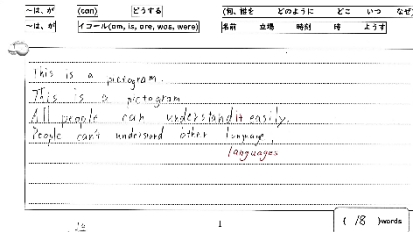 〜は、が (can) どうする (何、誰を どのように どこ いつ なぜ)
〜は、が イコール(am, is, are, was, were) 名前 立場 時刻 時 ようす
This is a pictogram.
This is a pictogram
All people can understand it easily.
People can't understand other language,
languages
1 ( 18 )words